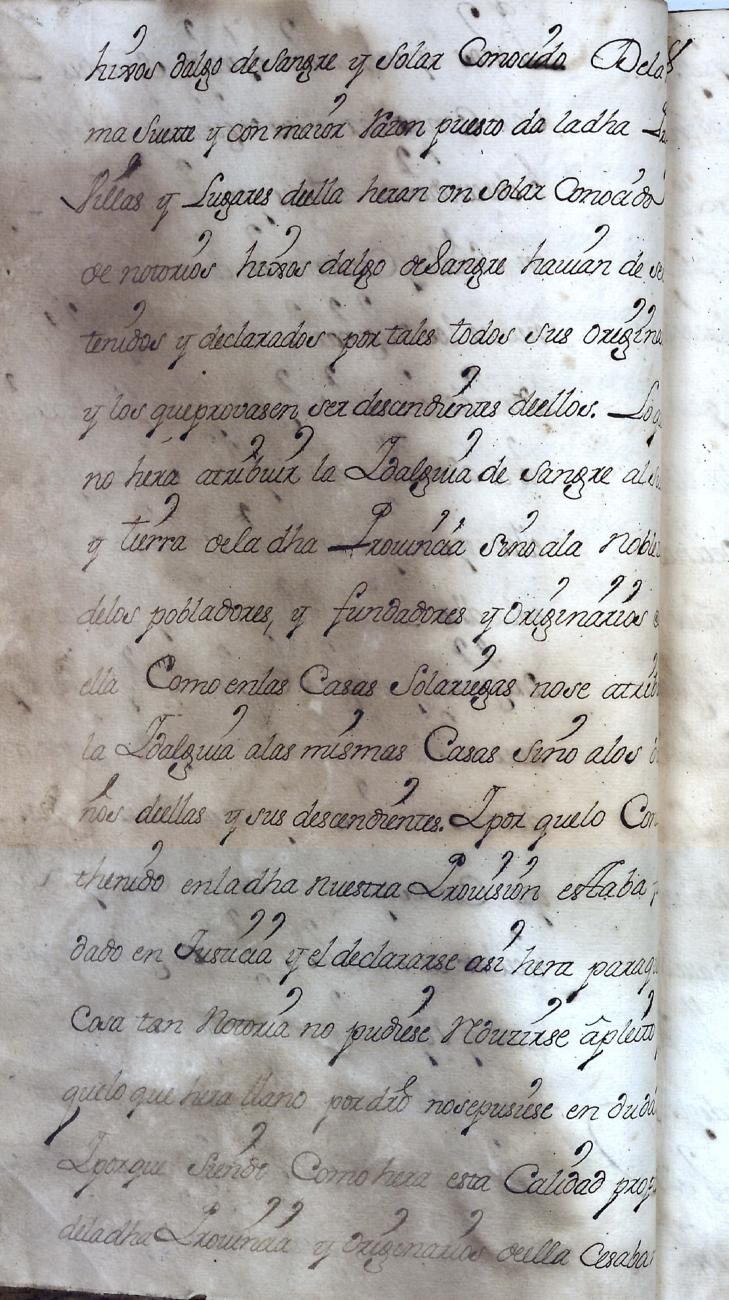 hixos dalgo de sangre y solar Conocido Dela
ma suerte y con maior razon puesto da ladha
Villas y Lugares della heran vn solar Conocido
de notorios hixos dalgo desangre hauian de se
tenidos y declarados por tales todos sus origina
y los que provasen ser descendientes deellos. Lo q
no hera atribuir la Idalguia de sangre al su
y tierra dela dha Prouincia sino ala Noble
delos pobladores, y fundadores y Originarios
ella Como enlas Casas Solariegas nose atrib
la Idalguia alas mismas Casas sino alos d
ños deellas y sus descendientes. Ipor quelo Con
thenido enladha nuestra Prouision estaba
dado en Justicia y el declararse asi hera paraq
Cosa tan Notoria no pudiese Nduzirse apleito
quelo que hera llano por dro nosepusiese en duda
Iporque siendo Como hera esta Calidad prop
deladha Prouincia y Originarios deella Cesaba